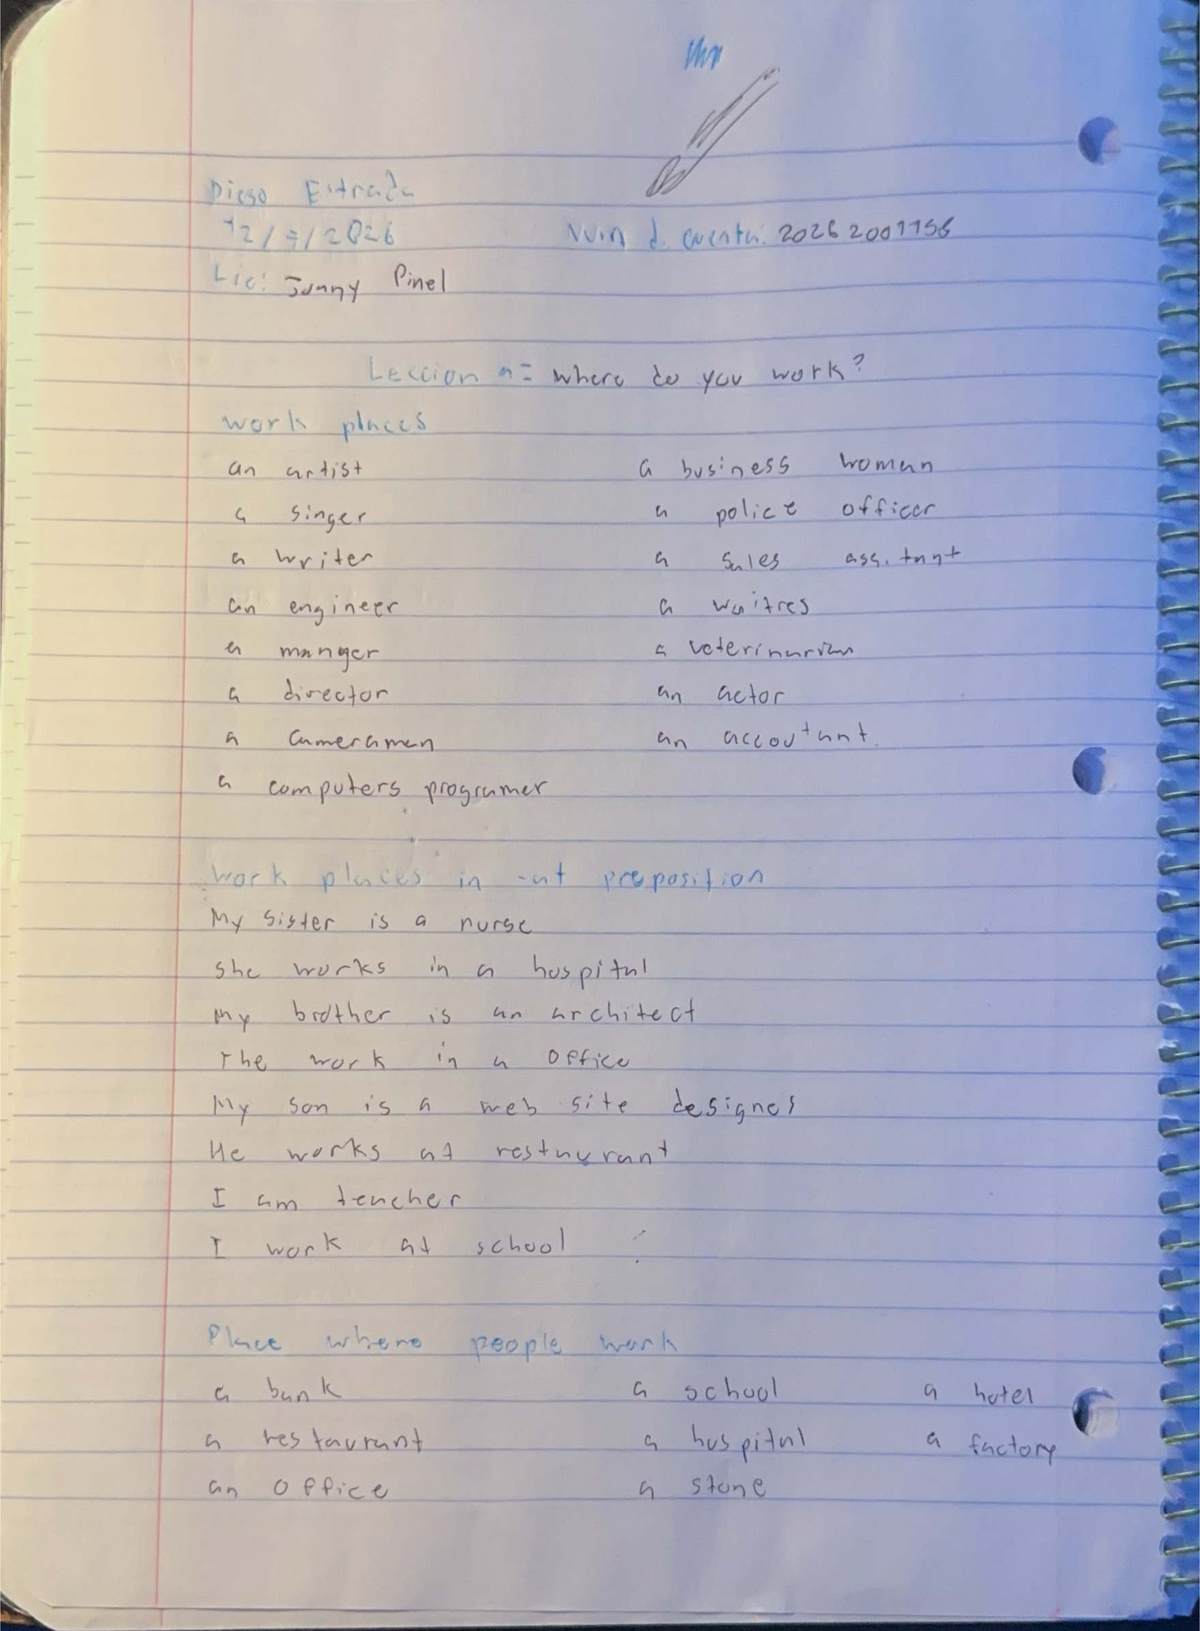 Diego Estrada
12/7/2026 Num d. cuenta. 20262001156
Lic: Junny Pinel
Leccion = where do you work?
work places
an artist a business woman
a singer a police officer
a writer a sales ass.tant
an engineer a waitres
a manger a veterinarian
a director an actor
a cameraman an accoutant.
a computers programer
work places in -at preposition
My sister is a nurse
she works in a hospital
My brother is an architect
The work in a office
My son is a web site designer
He works at restaurant
I am teacher
I work at school
Place where people work
a bank a school a hotel
a restaurant a hospital a factory
an office a stone